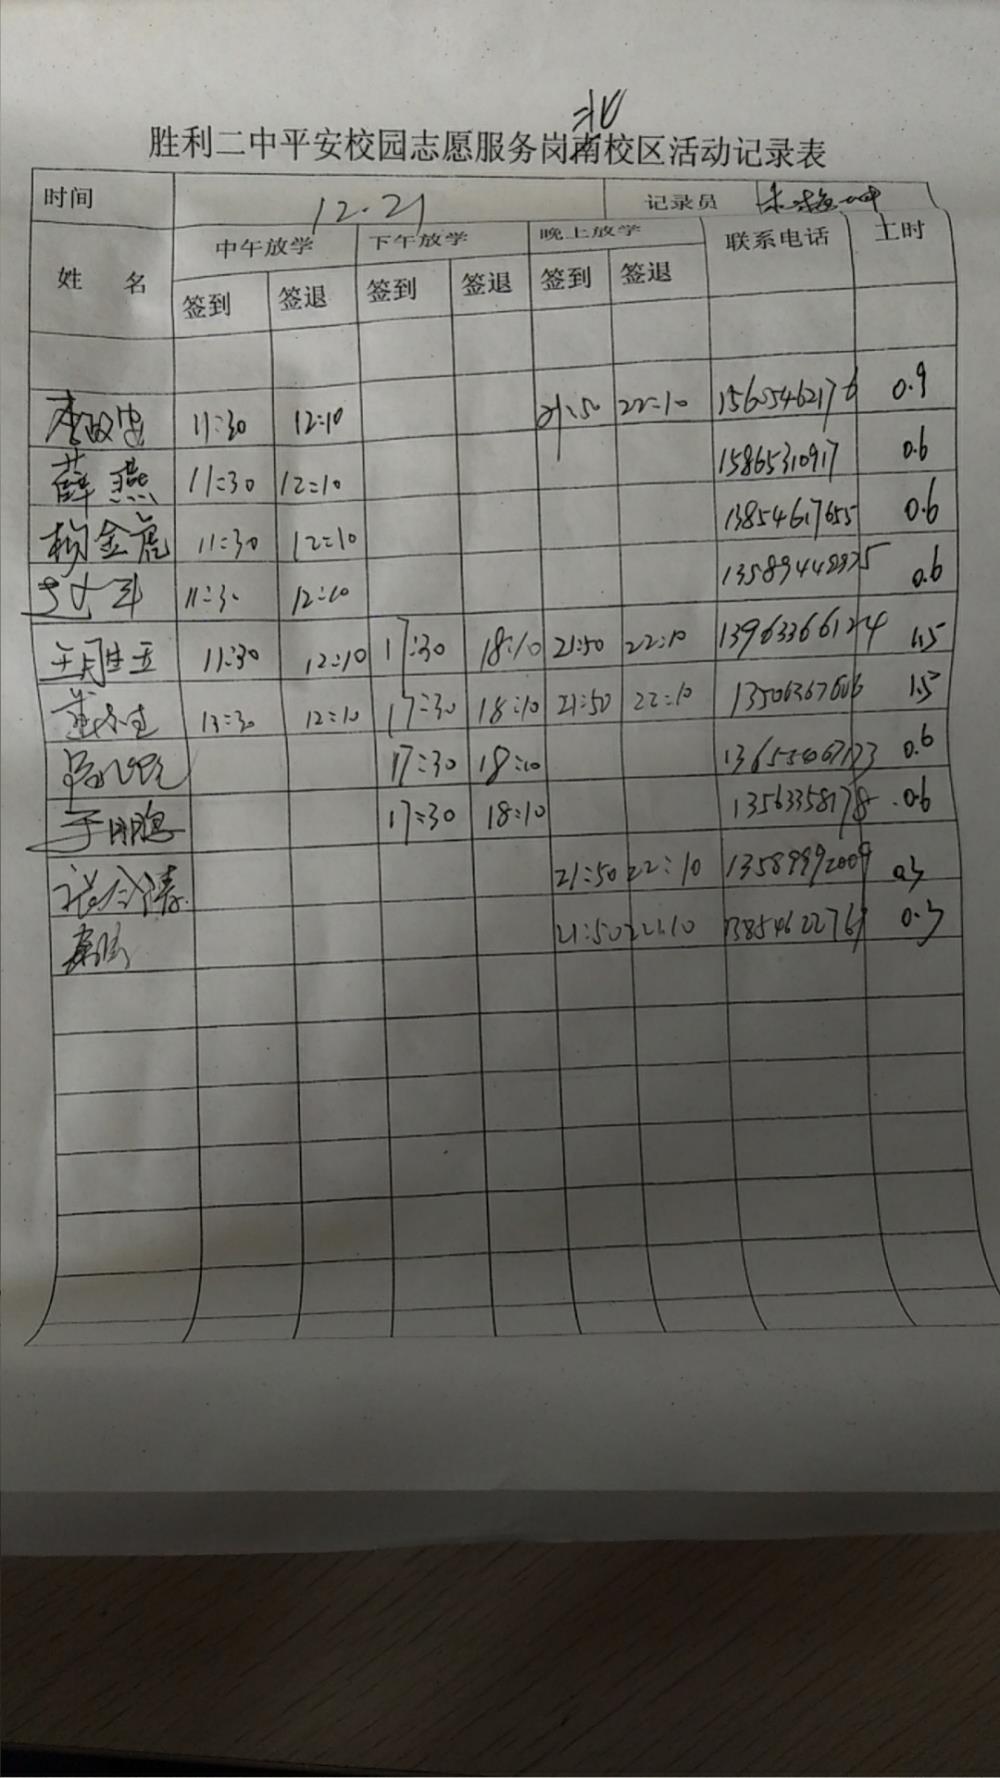 北
胜利二中平安校园志愿服务岗南校区活动记录表
时间 12.21 记录员
姓 名 中午放学 下午放学 晚上放学 联系电话 工时
签到 签退 签到 签退 签到 签退
11:30 12:10 21:50 22:10 15605462176 0.9
薛燕 11:30 12:10 15865310917 0.6
杨金虎 11:30 12:10 13854617655 0.6
11:30 12:10 0.6
王胜玉 11:30 12:10 17:30 18:10 21:50 22:10 13963366124 1.5
13:30 12:10 17:30 18:10 21:50 22:10 13506367606 1.5
17:30 18:10 0.6
于鹏 17:30 18:10 13563358178 0.6
21:50 22:10 13589992009 0.3
21:50 22:10 13854622769 0.3